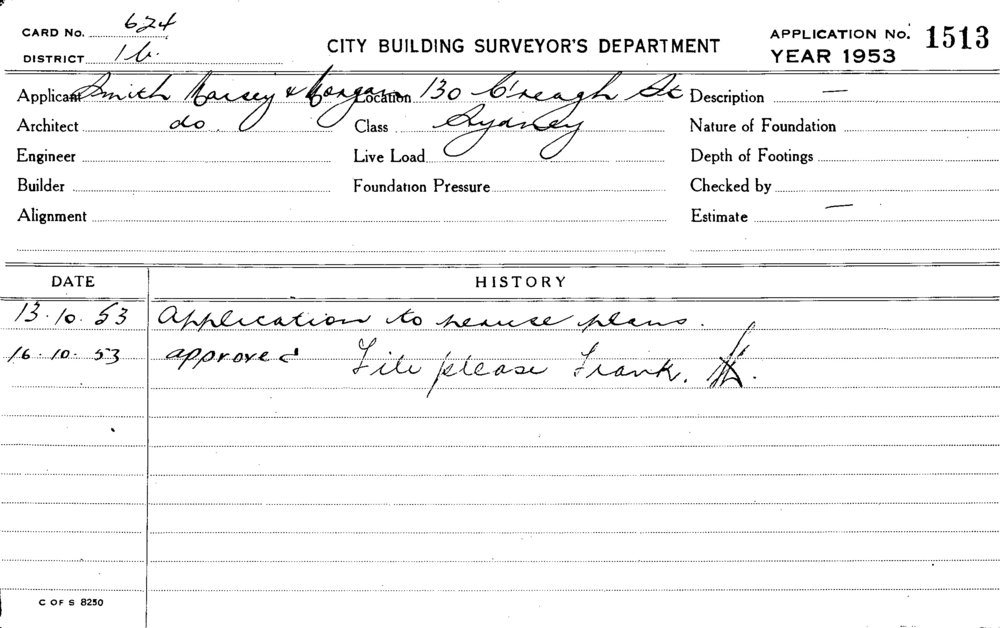 CARD No. 624
DISTRICT 1b.
CITY BUILDING SURVEYOR'S DEPARTMENT
APPLICATION No. 1513
YEAR 1953
Applicant Smith & Morgan Location 130 C'reagh St Description —
Architect do. Class Sydney Nature of Foundation
Engineer Live Load Depth of Footings
Builder Foundation Pressure Checked by
Alignment Estimate —
DATE HISTORY
13.10.53 Application to peruse plans.
16.10.53 approved File please Frank.
C OF S 8250